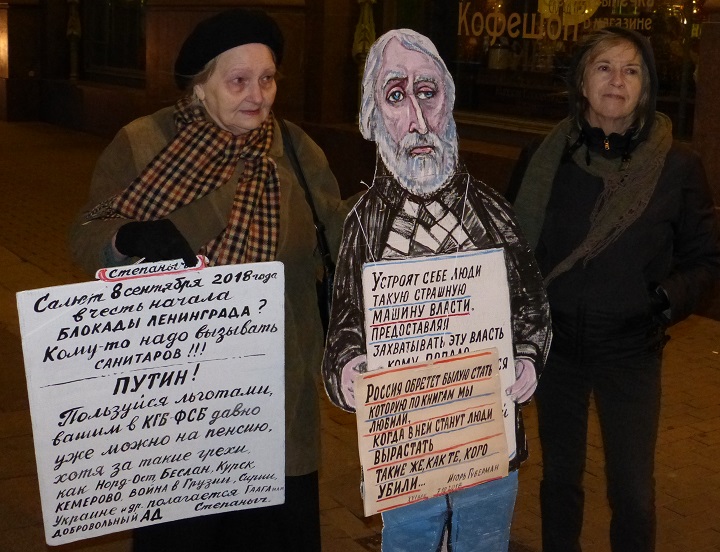 Кофешоп
в магазине
Степаныч
Салют 8 сентября 2018 года
в честь начала
БЛОКАДЫ ЛЕНИНГРАДА?
Кому-то надо вызывать
САНИТАРОВ!!!
ПУТИН!
Пользуйся льготами,
вашим в КГБ-ФСБ давно
уже можно на пенсию,
хотя за такие грехи
как Норд-Ост, Беслан, Курск
КЕМЕРОВО, ВОЙНА В ГРУЗИИ, СИРИИ,
Украине и др. полагается ГААГА или
ДОБРОВОЛЬНЫЙ АД. Степаныч.
Устроят себе люди
такую страшную
машину власти,
предоставляя
захватывать эту власть
кому попало
Россия обретет былую стать
которую по книгам мы
любили,
когда в ней станут люди
вырастать
такие же, как те, кого
убили...
Игорь Губерман